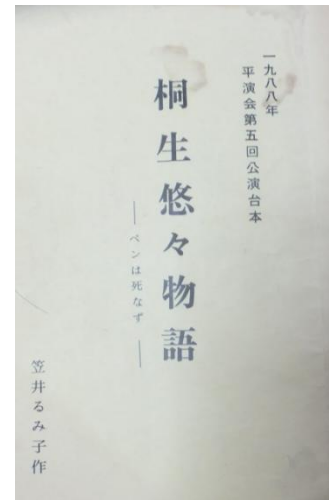 一九八八年
平演会第五回公演台本
桐生悠々物語
―ペンは死なず―
笠井るみ子作